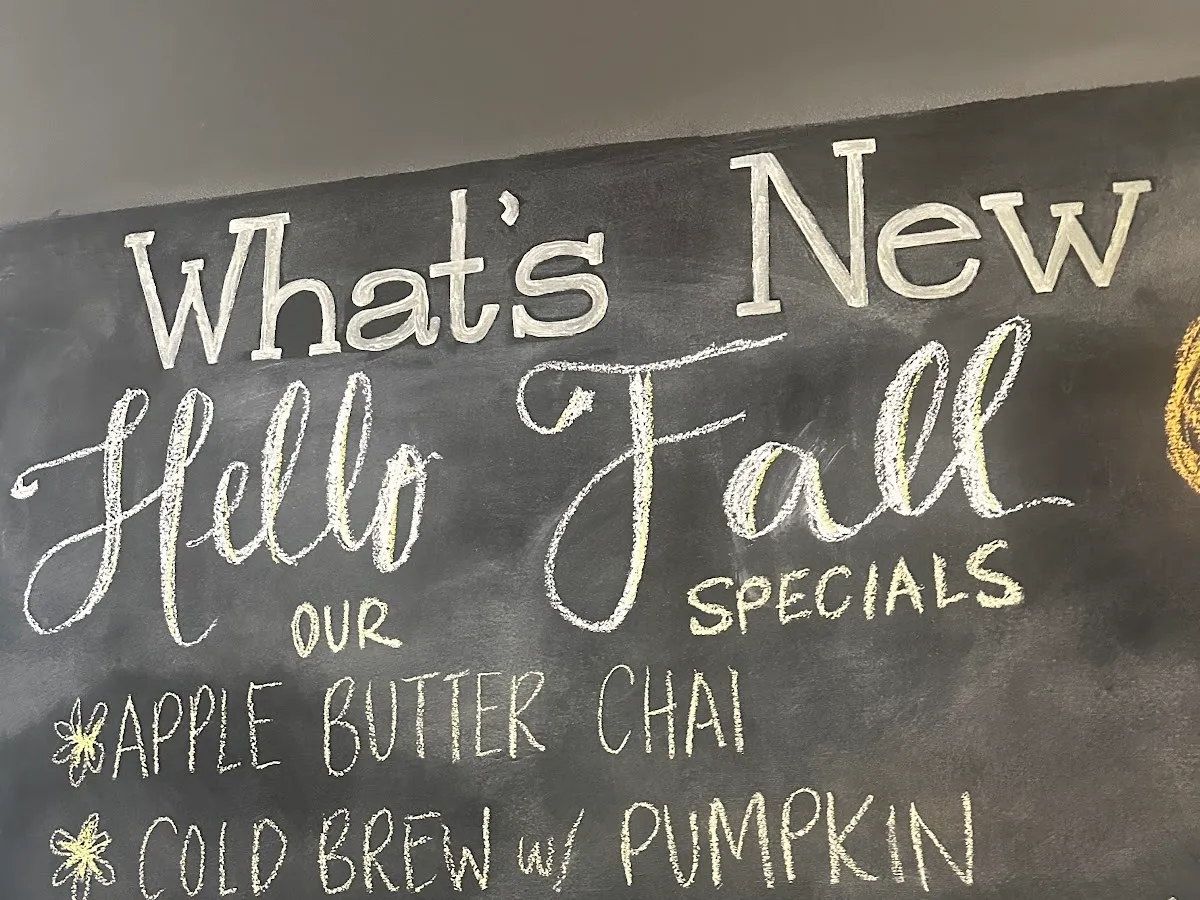 What's New
Hello Fall
OUR SPECIALS
APPLE BUTTER CHAI
COLD BREW w/ PUMPKIN